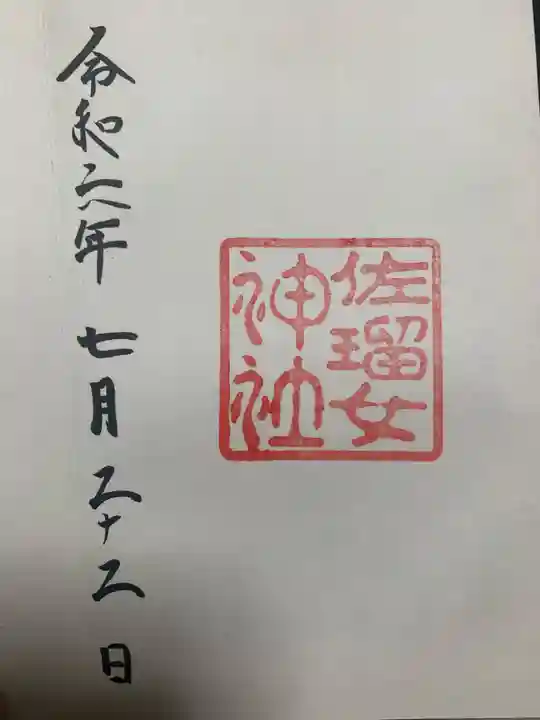 佐瑠女
神社
令和六年 七月 二十二日